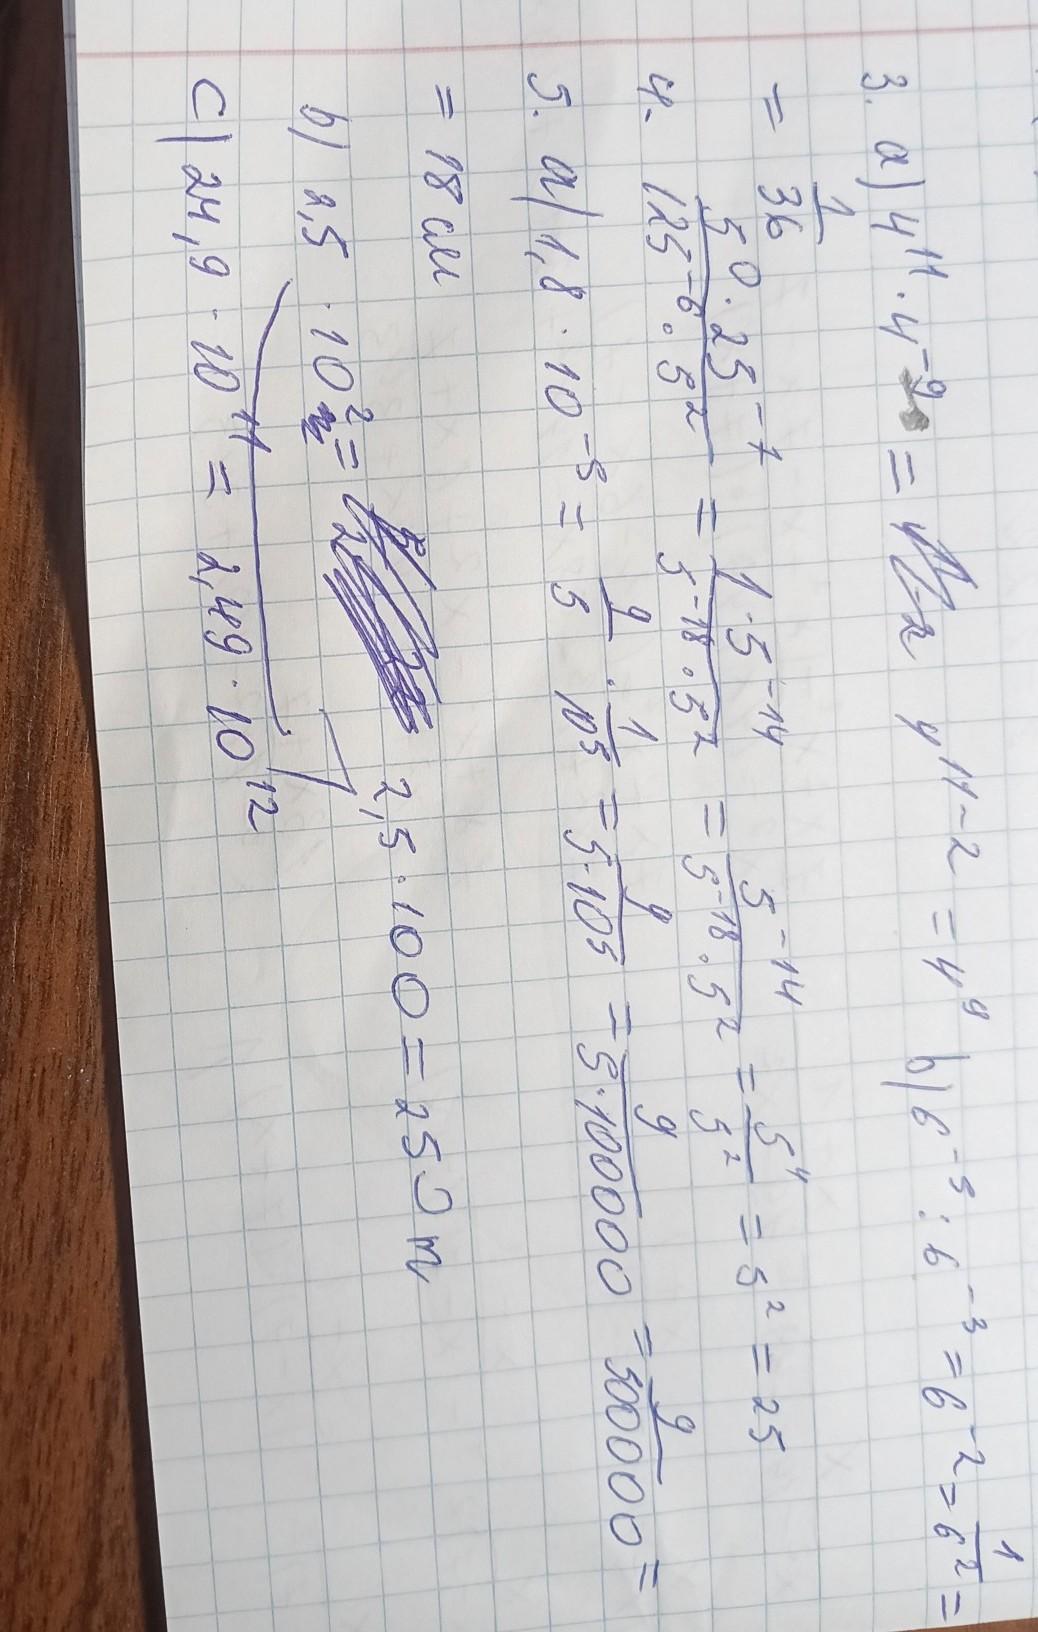 3. a) 4¹¹ · 4⁻⁹ = 4¹¹⁻² 4¹¹⁻² = 4⁹ b) 6⁻⁵ : 6⁻³ = 6⁻² = 1/6² =
= 1/36
4. 5⁰ · 25⁻⁷ / 125⁻⁶ · 5² = 1 · 5⁻¹⁴ / 5⁻¹⁸ · 5² = 5⁻¹⁴ / 5⁻¹⁸ · 5² = 5⁴ / 5² = 5² = 25
5. a) 1,8 · 10⁻⁵ = 9/5 · 1/10⁵ = 9 / 5 · 10⁵ = 9 / 5 · 100000 = 9 / 500000 =
= 18 см
b) 2,5 · 10² = 2,5 · 100 = 250 м
c) 24,9 · 10¹¹ = 2,49 · 10¹²